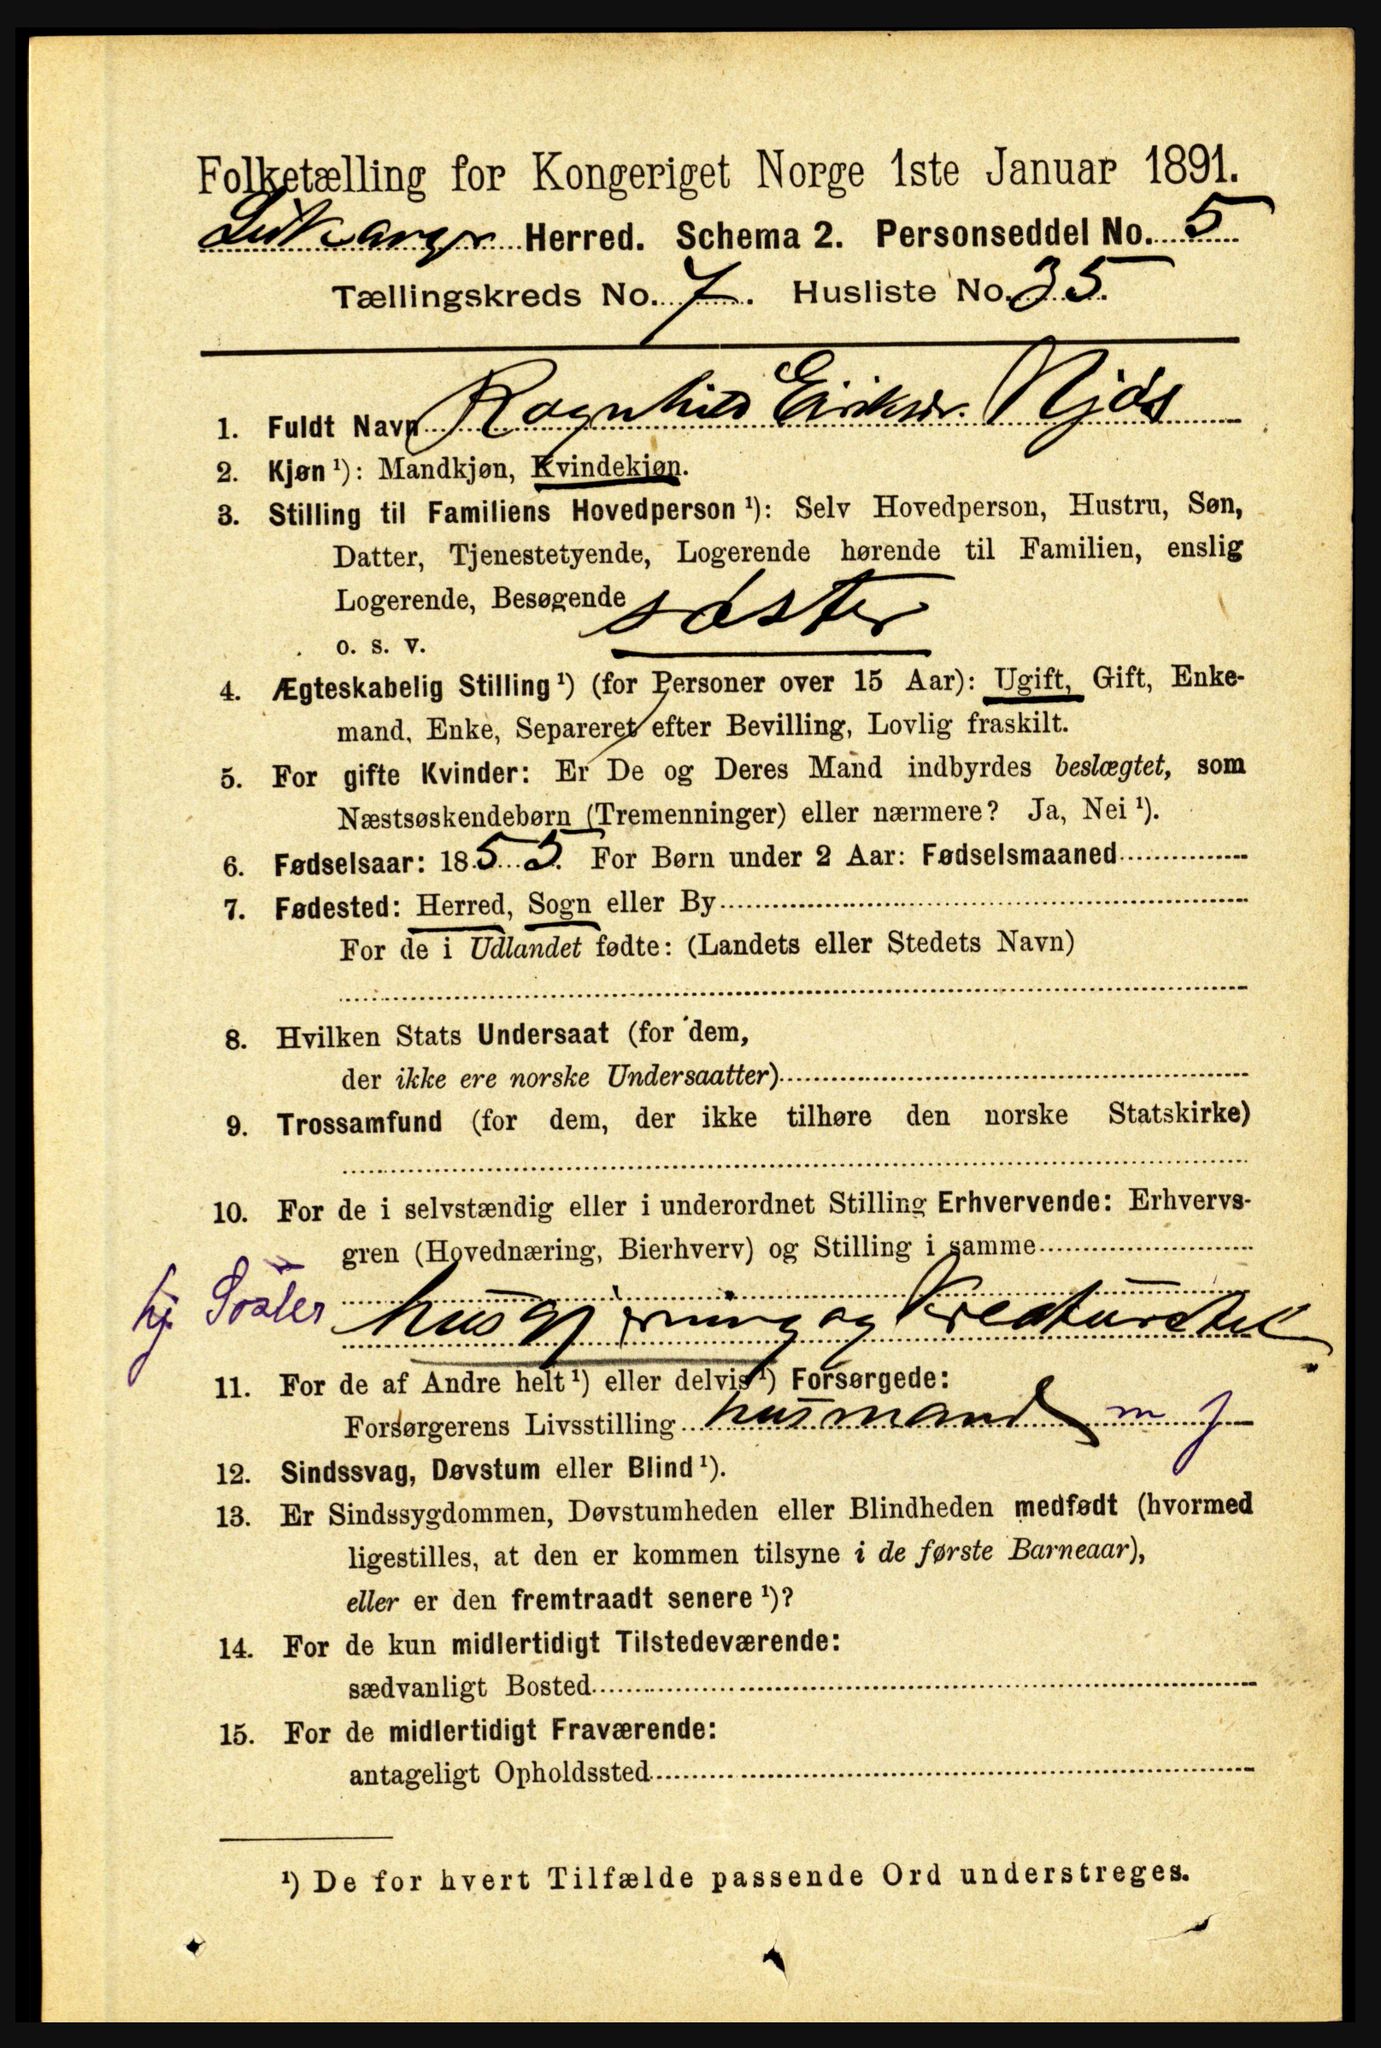 Folketælling for Kongeriget Norge 1ste Januar 1891.
Leikanger Herred. Schema 2. Personseddel No. 5
Tællingskreds No. 7. Husliste No. 35.
1. Fuldt Navn Ragnhild Eriksdr. Njøs
2. Kjøn ¹): Mandkjøn, Kvindekjøn.
3. Stilling til Familiens Hovedperson ¹): Selv Hovedperson, Hustru, Søn,
Datter, Tjenestetyende, Logerende hørende til Familien, enslig
Logerende, Besøgende søster
o. s. v.
4. Ægteskabelig Stilling ¹) (for Personer over 15 Aar): Ugift, Gift, Enke-
mand, Enke, Separeret efter Bevilling, Lovlig fraskilt.
5. For gifte Kvinder: Er De og Deres Mand indbyrdes beslægtet, som
Næstsøskendebørn (Tremenninger) eller nærmere? Ja, Nei ¹).
6. Fødselsaar: 1855. For Børn under 2 Aar: Fødselsmaaned
7. Fødested: Herred, Sogn eller By
For de i Udlandet fødte: (Landets eller Stedets Navn)
8. Hvilken Stats Undersaat (for dem,
der ikke ere norske Undersaatter)
9. Trossamfund (for dem, der ikke tilhøre den norske Statskirke)
10. For de i selvstændig eller i underordnet Stilling Erhvervende: Erhvervs-
gren (Hovednæring, Bierhverv) og Stilling i samme
hj. Søster husgjerning og Kreaturstel
11. For de af Andre helt ¹) eller delvis ¹) Forsørgede:
Forsørgerens Livsstilling husmand m j
12. Sindssvag, Døvstum eller Blind ¹).
13. Er Sindssygdommen, Døvstumheden eller Blindheden medfødt (hvormed
ligestilles, at den er kommen tilsyne i de første Barneaar),
eller er den fremtraadt senere ¹)?
14. For de kun midlertidigt Tilstedeværende:
sædvanligt Bosted
15. For de midlertidigt Fraværende:
antageligt Opholdssted
¹) De for hvert Tilfælde passende Ord understreges.